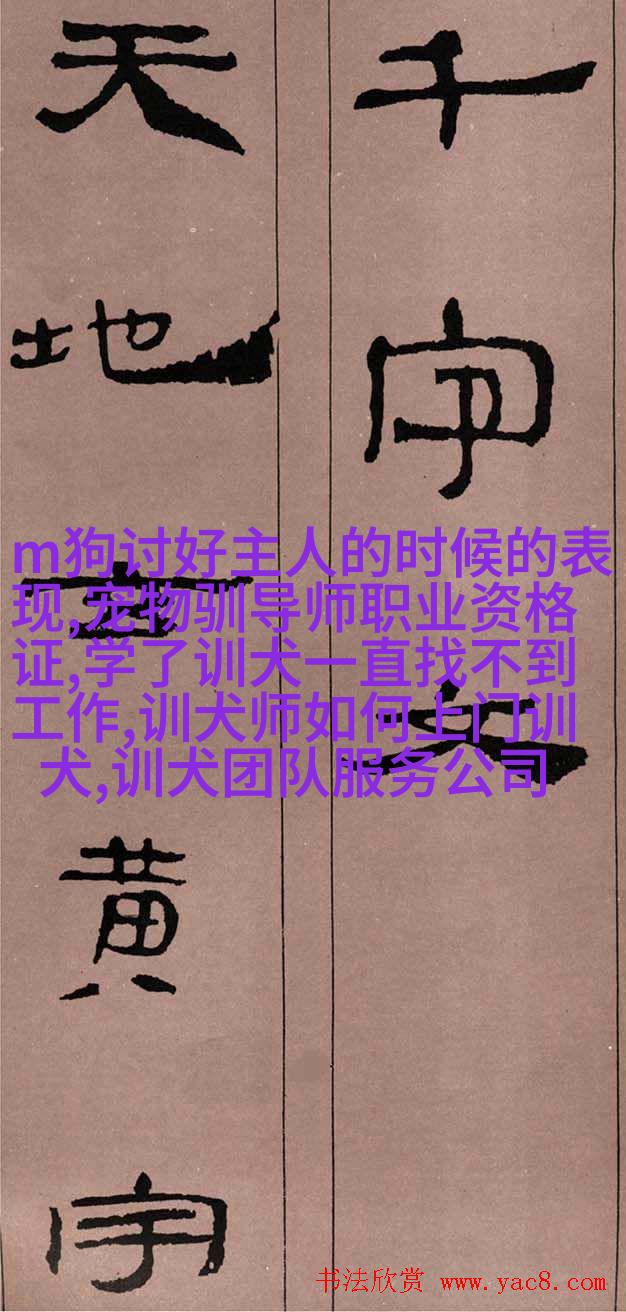 千字文
天地玄黄宇
m狗讨好主人的时候的表
现,宠物驯导师职业资格
证,学了训犬一直找不到
工作,训犬师如何上门训
犬,训犬团队服务公司
书法欣赏 www.yac8.com